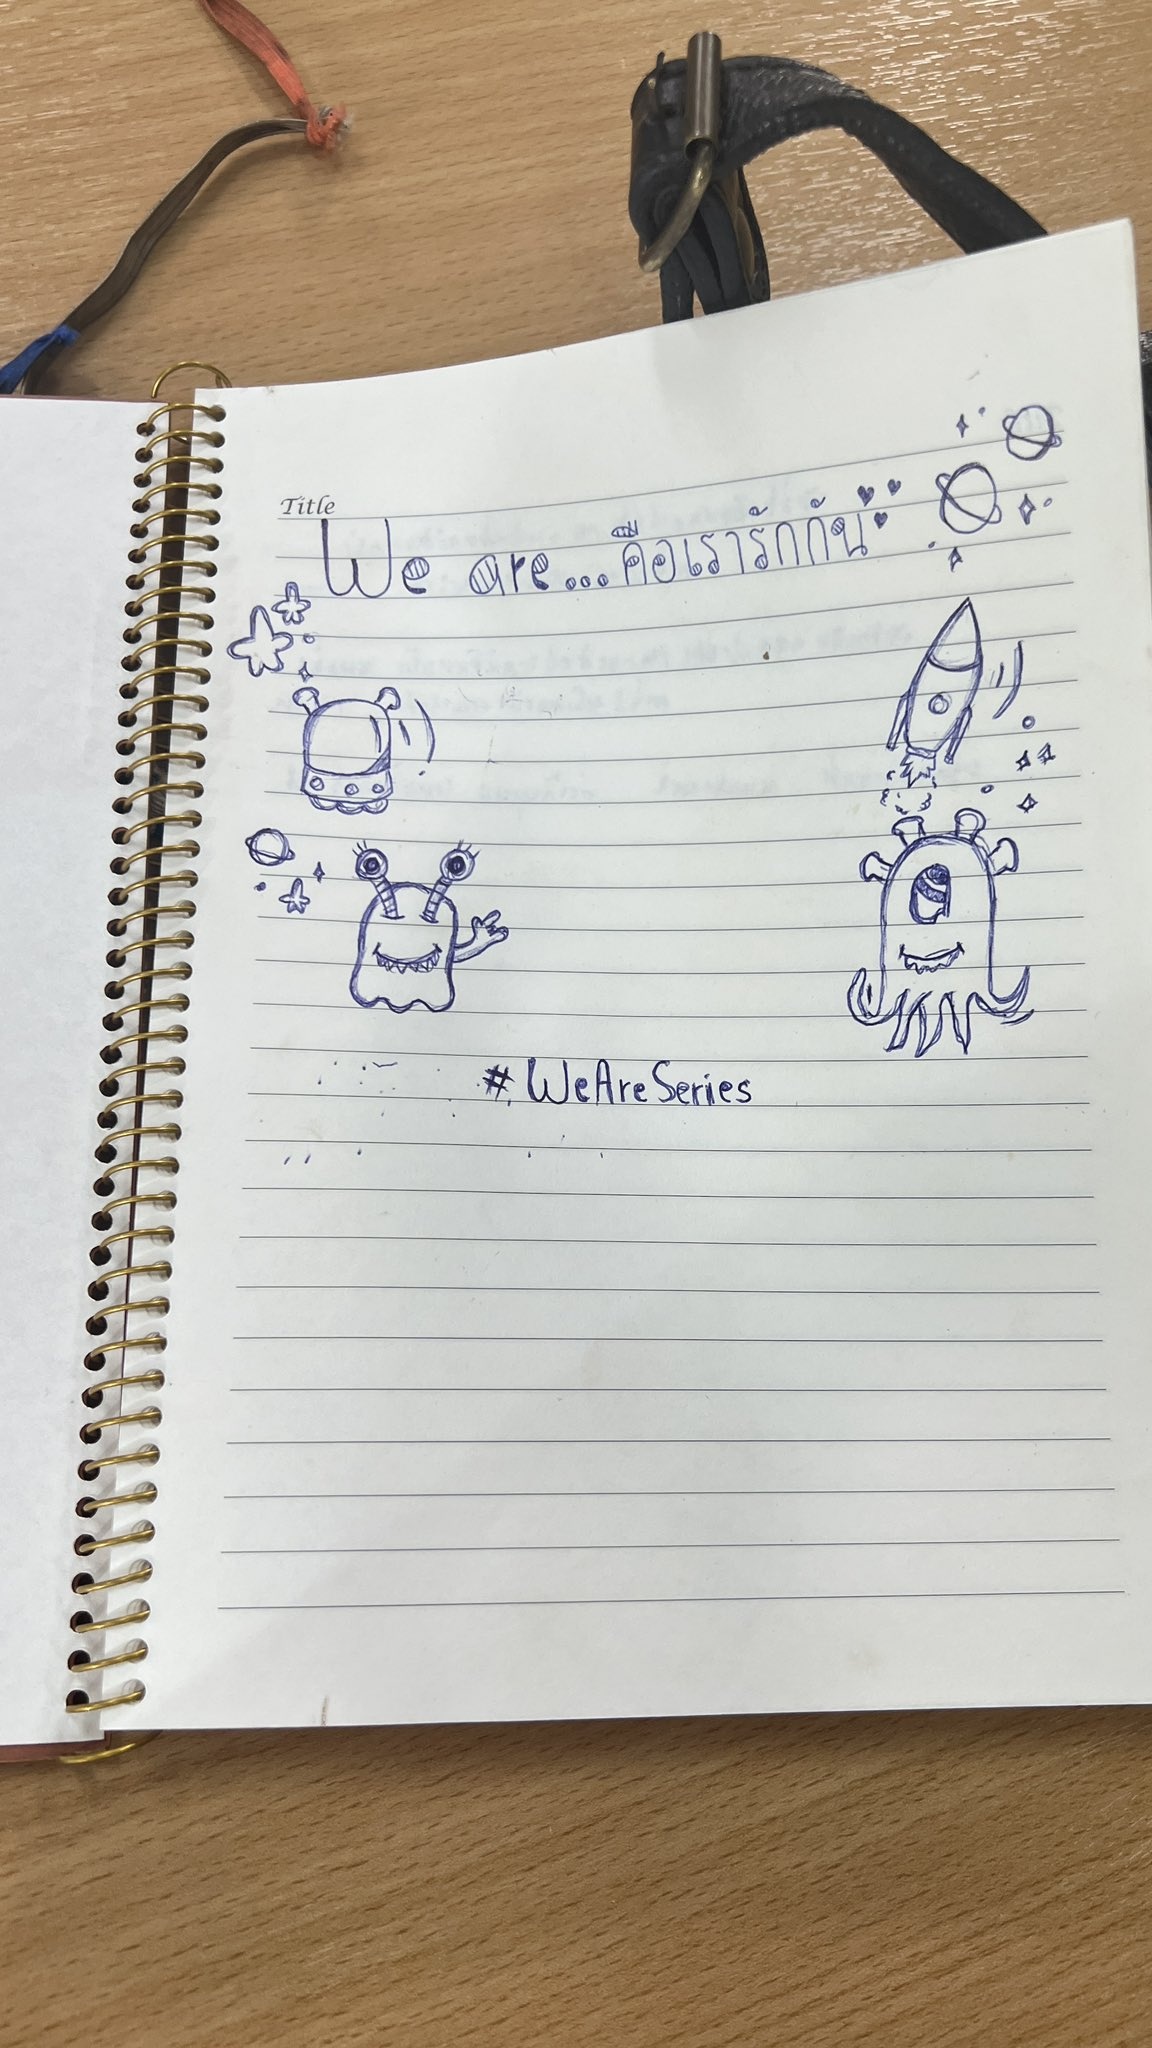 Title
We are...คือเรารักกัน
#WeAreSeries